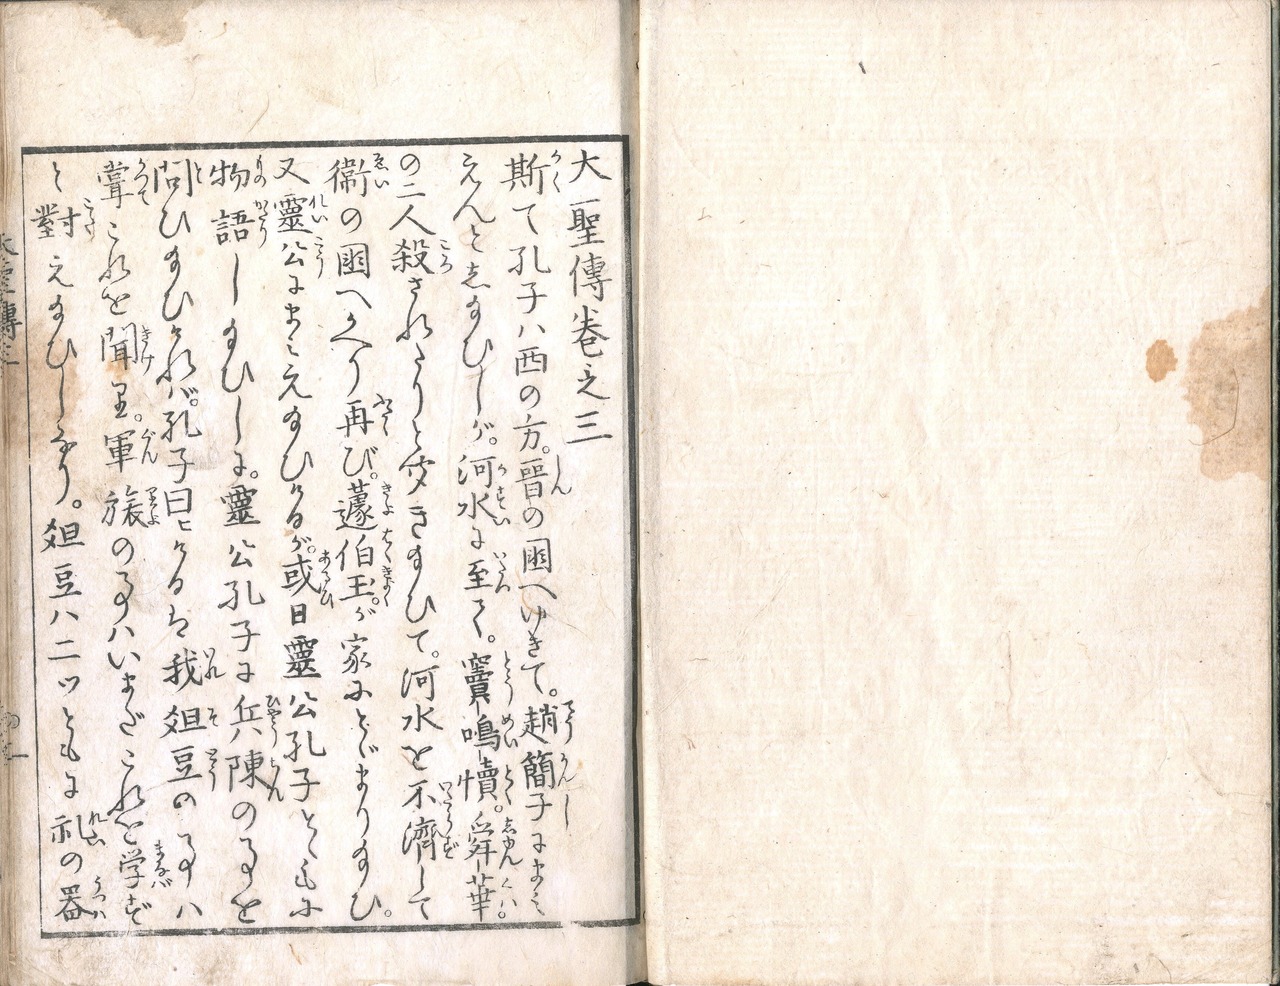 大聖傳巻之三
斯て孔子ハ西の方。晉の國へゆきて。趙簡子にまみ
えんとし給ひしが。河水に至て。竇鳴犢。舜華
の二人殺されたりと聞き給ひて。河水を不済して
衛の國へかへり再び。蘧伯玉。が家にとゞまり給ひ。
又靈公にまみえ給ひけるが。或日靈公孔子とともに
物語し給ひしに。靈公孔子に兵陳の事を
問ひ給ひければ。孔子曰ヒけるは我爼豆の事ハ
甞これを聞里。軍旅の事ハいまだこれを学ず
と對え給ひしなり。爼豆ハ二ツともに礼の器